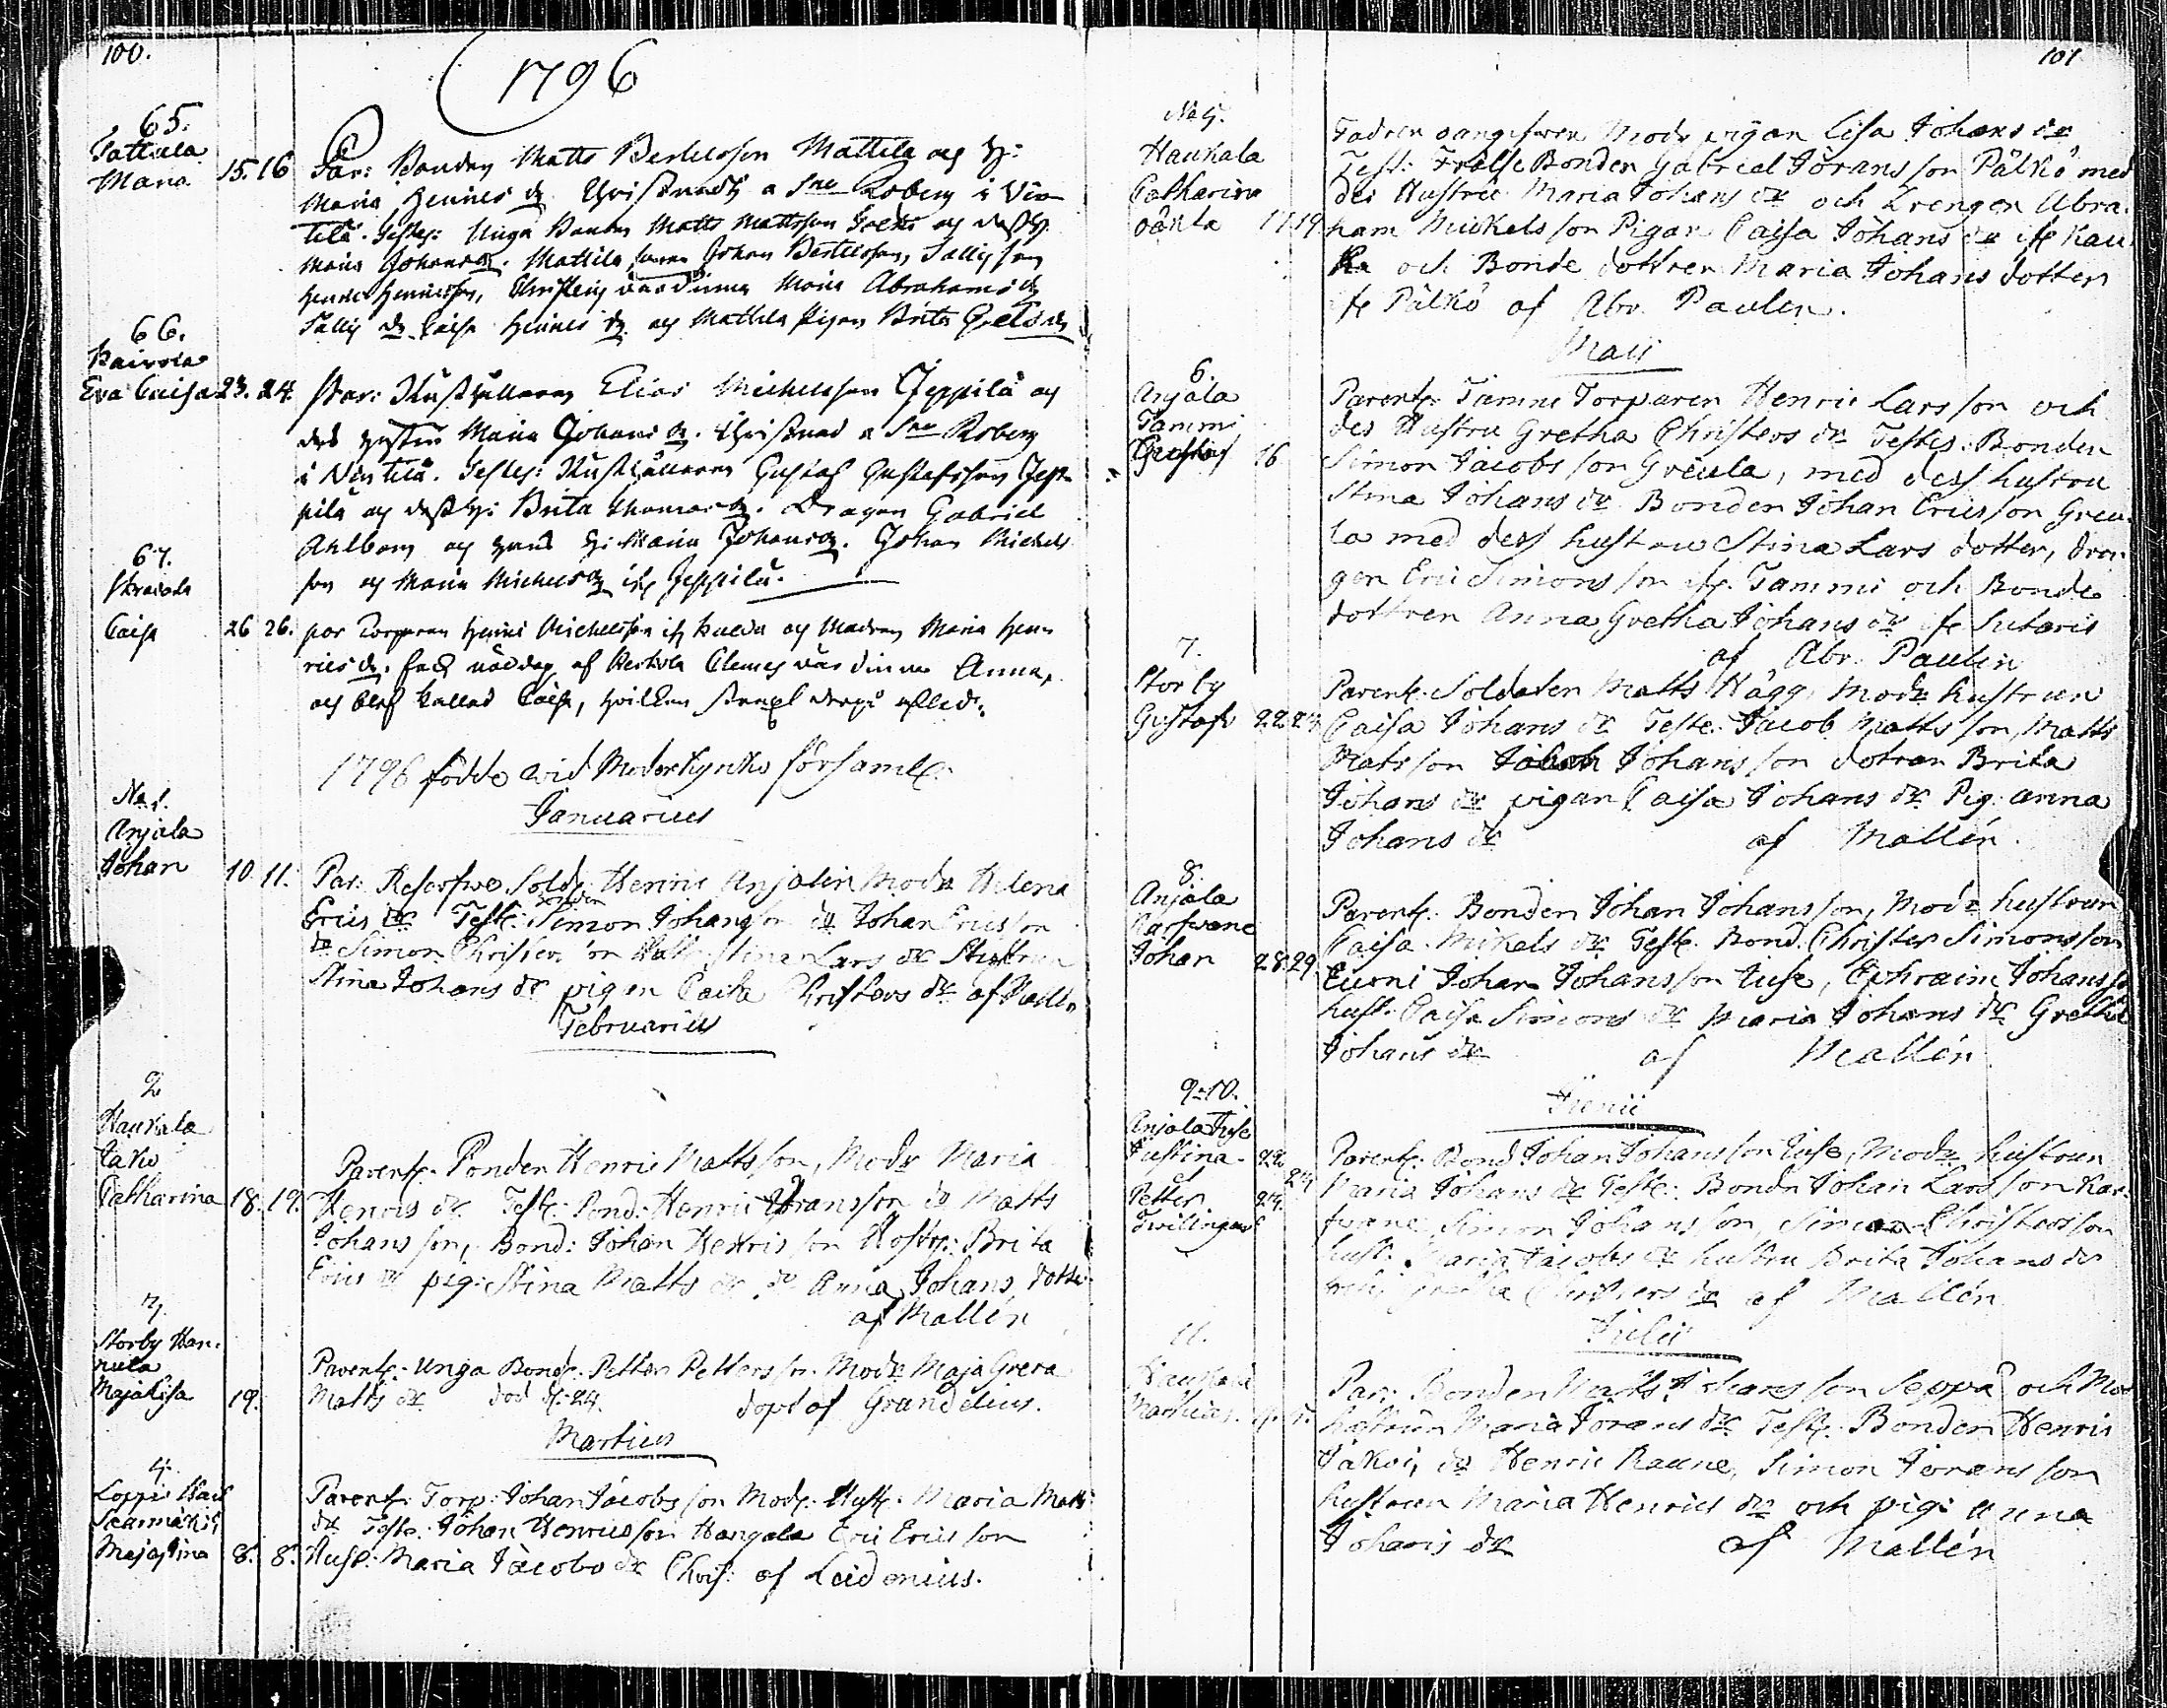 100.
1796
65.
Tattula
Maria 15. 16 Par: Bonden Matts Bertelsson Mattila och H:
Maria Henrics dr Christnadt a Sne Roberg i Vir
tilä. Testes: Unga Bonden Matts Mattsson och dess H.
Maria Johans dr. Mattila sonen Johan Bertelsson,
Henric Henricsson, värdinna Maria Abrahams dr
dr Caisa Henrics dr. och Mattila Pigan Brita
66.
Kairola
Eva Caisa 23. 24. Par: Rusthållaren Elias Michelsson Jeppilä och
des hustru Maria Johans dr. Christnad a Sne Roberg
i Virtilä. Testes: Rusthållaren Gustaf Gustafsson Jep-
pilä och dess H: Brita Thomas dr. Dragon Gabriel
Ahlberg och hans H: Maria Johans dr. Johan Michels
son och Maria Michels dr ifr Jeppilä.
67.
Caisa 26 26. par Torparen Henric Michelsson ifr och Modren Maria Hen
rics dr. fick nöddop af värdinna Anna,
och blef kallad Caisa, hvilken
1796 födde wid Moderkyrko församl:
Januarius
No 1.
Anjala
Johan 10. 11. Par: Reserfwe Sold: Henric Anjalin Modr Helena
Erics dr Test: Bonden Simon Johansson do Johan Ericsson
do Simon Christersson Stina Lars dr Hustrun
Stina Johans dr pigan Caisa Christers dr af Mallén
Februarius
2
Haukala
Jako
Catharina 18. 19. Parent: Bonden Henric Mattsson, Modr Maria
Henrics dr. Test: Bond: Henric Göransson do Matts
Johansson, Bond: Johan Henricsson Hustr: Brita
Erics dr pig: Stina Matts dr do Anna Johans dotter
af Mallén
3.
Storby Han-
nula
Maja Lisa 19. Parent: Unga Bond: Petter Pettersson Modr Maja Greta
Matts dr död d: 24. döpt af Grandelius.
Martius
4.
Maja Stina 8. 8. Parent: Torp: Johan Jacobsson Modr: Hust: Maria Matts
dr Test: Johan Henricsson Hangala Eric Ericsson
Hust: Maria Jacobs dr Chris: af Leidenius.
101
No 5.
Haukala
Catharina
oäkta 17. 19. Fadren oangifwen Modr pigan Lisa Johans dr
Test: Frälse Bonden Gabriel Göransson Pälkö med
des Hustru Maria Johans dr och Drengen Abra-
ham Mickelsson Pigan Caisa Johans dr ifr Kau
ka och Bonde dottren Maria Johans dotter
ifr Pälkö af Abr. Paulin.
Maii
6.
Anjala
Tammi
Gustaf 16 Parent: Tammi Torparen Henric Larsson och
des Hustru Gretha Christers dr Testes: Bonden
Simon Jacobsson Greula, med dess hustru
Stina Johans dr Bonden Johan Ericsson Greu-
la med dess hustru Stina Lars dotter, dren-
gen Eric Simonsson ifr. Tammi och Bonde
dottren Anna Gretha Johans dr ifr Sutaris
af Abr. Paulin
7.
Storby
Gustaf 22. 24. Parent: Soldaten Matts Hägg, Modr hustrun
Caisa Johans dr Test: Jacob Mattsson, Matts
Matsson Jacob Johansson dotran Brita
Johans dr pigan Caisa Johans dr Pig: Anna
Johans dr af Mallén.
8.
Anjala
Karfvane
Johan 28. 29. Parent: Bonden Johan Johansson, Modr hustrun
Caisa Mikels dr Test: Bond: Christer Simonsson
Eurni Johan Johansson Tuse, Ephraim Johansson
hust: Caisa Simons dr Maria Johans dr Gretha
Johans dr af Mallén
Junii
9-10.
Anjala Tuse
Justina 22
et 24
Petter 24.
Twilingar Parent: Bond Johan Johansson Tuse, Modr hustrun
Maria Johans dr Test: Bondn Johan Larsson Kar-
fvane Simon Johansson, Simon Christersson
hust: Maria Jacobs dr hustru Brita Johans dr
Gretha Christers dr af Mallén
Julii
11.
Haukala
Mathias Par: Bonden Matts Johansson Seppä och Mod
hustrun Maria Görans dr Test: Bonden Henric
Jakoi, do Henric Raune, Simon Göransson
hustrun Maria Henrics dr och pig: Anna
Johans dr af Mallén